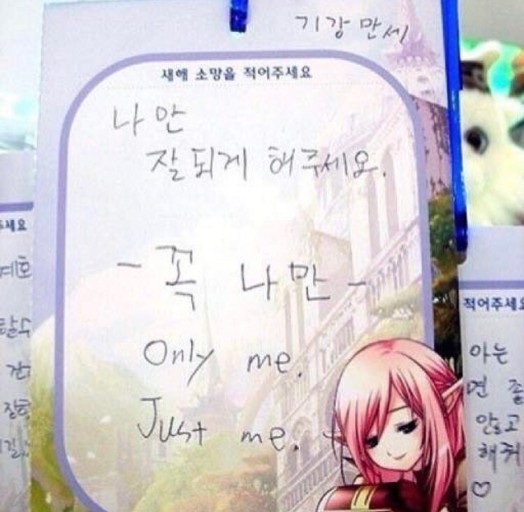 기강만세
새해 소망을 적어주세요
나만
잘되게 해주세요.
- 꼭 나만 -
Only me.
Just me.
세요
적어주세요
아는
면
않고
해줘
♡